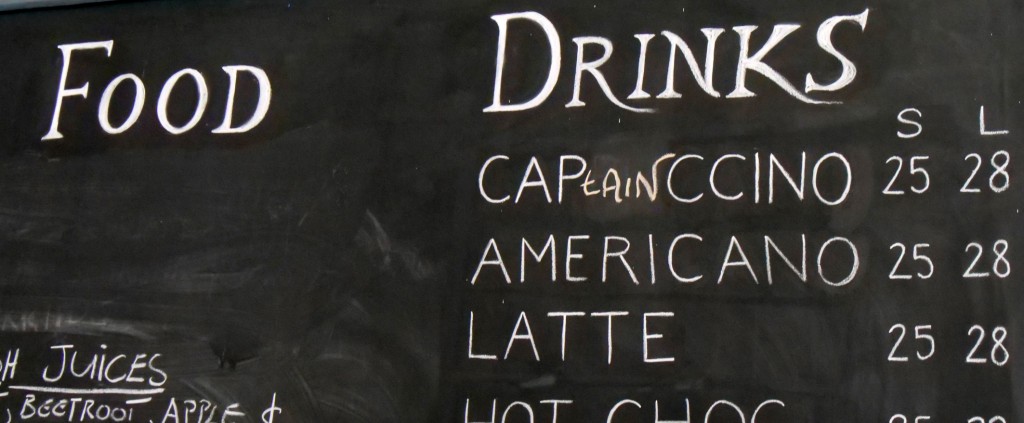 FOOD
JUICES
BEETROOT, APPLE &
DRINKS
S L
CAPtAINCCINO 25 28
AMERICANO 25 28
LATTE 25 28
HOT CHOC